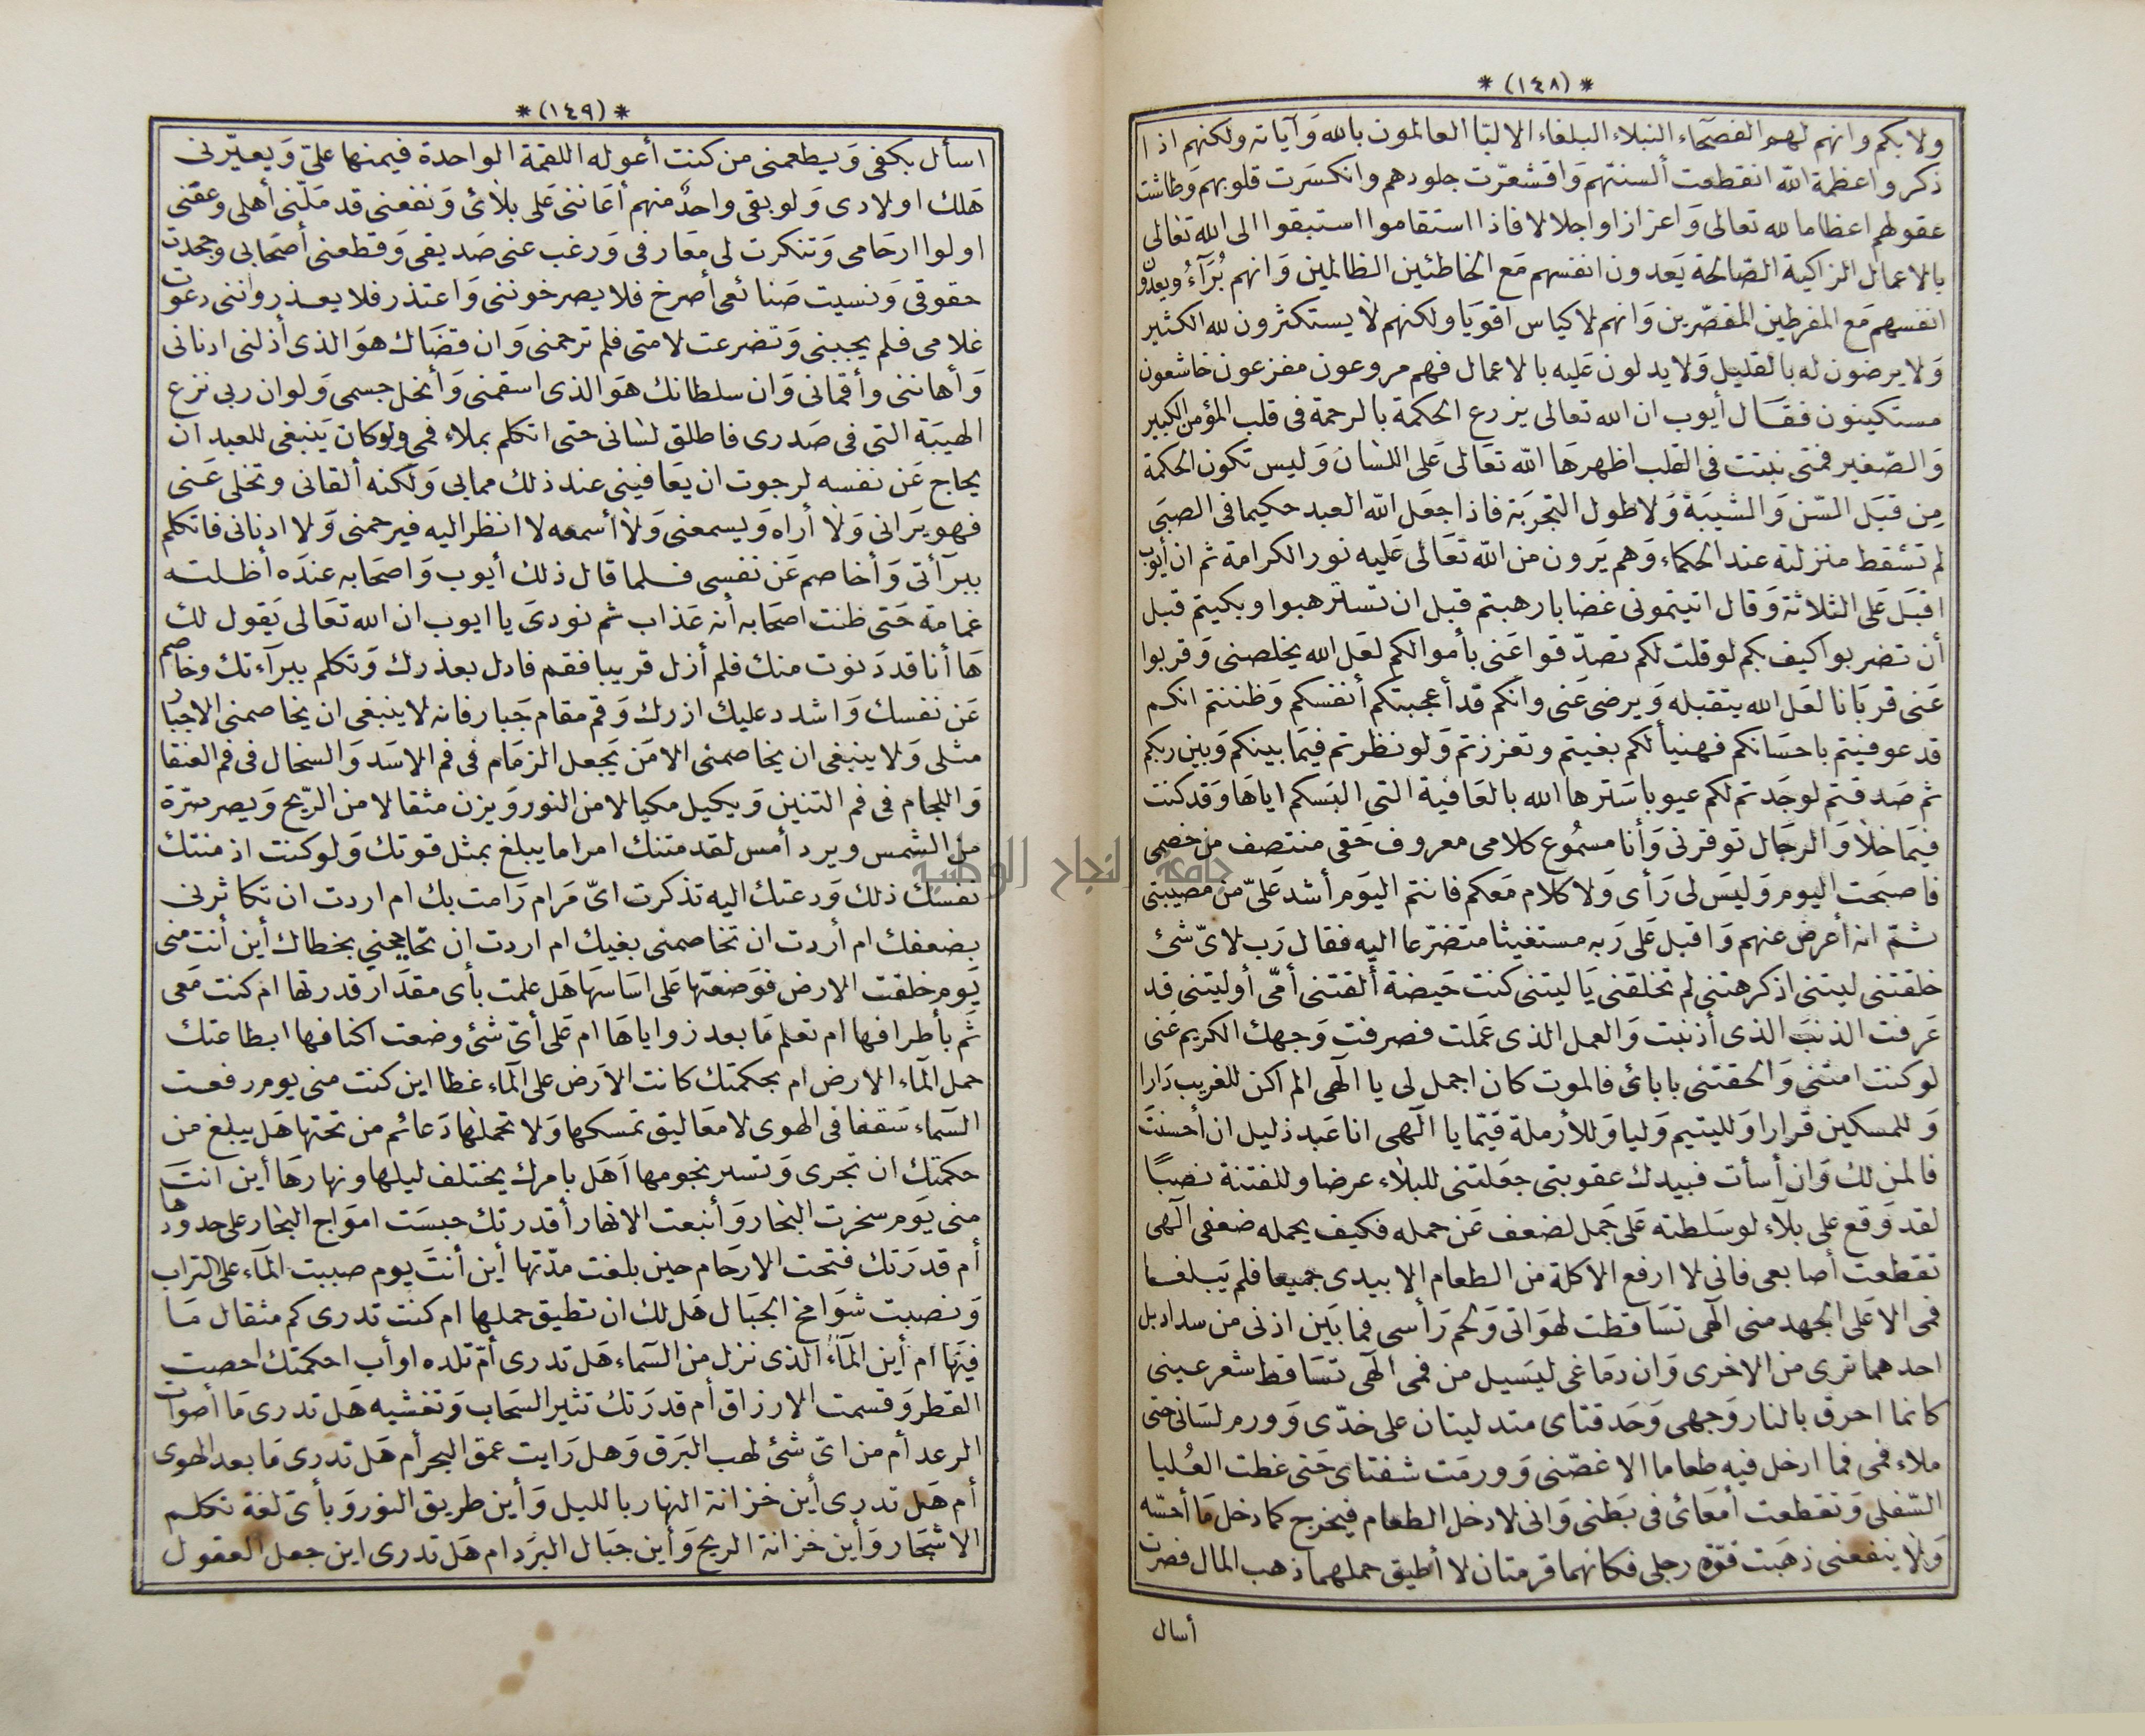 * (١٤٨) *
ولا بكم وانهم لهم الفصحاء النبلاء البلغاء الالبّا العالمون بالله وَآياته ولكنهم اذا
ذكروا عظمة الله انقطعت ألسنتهم وَاقشعرّت جلودهم وانكسَرت قلوبهم وَطاشت
عقولهم اعظاما لله تعالى وَاعزازا واجلالا فاذا استقاموا استبقوا الى الله تعالى
بالاعمال الزاكية الصّالحة يَعدون انفسهم مَع الخاطئين الظالمين وَانهم بُرَآءُ ويعدون
انفسهم مَع المفرطين المقصّرين وَانهم لاكياس اقويَا ولكنهم لا يستكثرون لله الكثير
وَلا يرضون له بالقليل وَلا يدلون عَليه بالاعمال فهم مروعون مفزعون خاشعون
مستكينون فقال أيوب ان الله تعالى يزرع الحكمة بالرحمة فى قلب المؤمن الكبير
وَالصّغير فمتى نبتت فى القلب اظهرهَا الله تعَالى عَلى اللسَان وَليس تكون الحكمة
مِن قبَل السّن وَالشيبَة وَلا طول التجربَة فاذا جعَل الله العبد حكيما فى الصبَى
لم تسْقط منزلته عند الحكماء وَهم يَرون من الله تعَالى عَليه نور الكرامة ثم ان أيوب
اقبَل عَلى الثلاثة وَقال اتيتمونى غضابا رهبتم قبل ان تسترهبوا وبكيتم قبل
أن تضربوا كيف بكم لو قلت لكم تصدّقوا عَنى بأموالكم لعَل الله يخلصنى وَقربوا
عَنى قربَانا لعَل الله يتقبله وَيرضى عَنى وانكم قد أعجبتكم أنفسكم وَظننتم انكم
قد عوفيتم باحسَانكم فهنيأ لكم بغيتم وتعززتم وَلو نظرتم فيمَا بينكم وَبين ربكم
ثم صَدقتم لوجَدتم لكم عيوبا سَترها الله بالعَافية التى البَسكم اياهَا وَقد كنت
فيمَا خلا وَالرجَال توقرنى وَأنا مسمُوع كلامى معروف حَقى منتصف من خصمى
فاصبَحت اليوم وَليسَ لى رَأى وَلا كلام مَعكم فانتم اليوَم أشد عَلىّ من مصيبتى
ثمّ انه أعرض عنهم وَاقبل عَلى رَبه مستغيثا متضرّعا اليه فقال رَب لاىّ شئ
خلقتنى ليتنى اذ كرهتنى لم تخلقنى يَا ليتنى كنت حَيضة ألقتنى أمّى أو ليتنى قد
عَرفت الذنبَ الذى أذنبت وَالعمل الذى عَملت فصرفت وَجهك الكريم عَنى
لو كنت امتنى وَالحقتنى باباىَٔ فالموت كان اجمل لى يا الٓهى الم اكن للغريب دَارا
وَللمسكين قرارا وَلليتيم وَليا وَللأرملة قيّما يا الٓهى انا عَبد ذليل ان أحسنتَ
فالمن لك وَان أسأت فبيدك عقوبتى جعَلتنى للبلاء عرضا وللفتنة نصبًا
لقد وَقع على بلآء لو سَلطته عَلى جَبل لضعف عَن حمله فكيف يحمله ضعفى الٓهى
تقطعت أصَابعى فانى لا ارفع الاكلة من الطعام الا بيدى جميعا فلم يَبلغا
فمى الا عَلى الجهد منى الٓهى تسَاقطت لهوَاتى وَلحم رَأسى فما بَين اذنى من سداد بل
احدهما ترى من الاخرى وَان دمَاغى ليَسيل من فمى الٓهى تسَاقط شعر عينى
كانما احرق بالنار وَجهى وَحَدقتاى متدليتان على خدّى وَورم لسَانى حتى
ملاء فمى فما ادخل فيه طعاما الا غصّنى وَورمَت شفتاى حَتى غطت العُليا
السّفلى وَتقطعت أمعَائ فى بَطنى وَانى لادخل الطعام فيخرج كما دخل مَا أحسّه
وَلا ينفعنى ذهَبت قوّة رجلى فكانهما قرمتان لا أطيق حملهما ذهب المال فصرت
أسال
* (١٤٩) *
اسأل بكفى وَيطعمنى من كنت أعوله اللقمة الواحدة فيمنها علىّ وَيعيّرنى
هَلك اولادى وَلو بقى واحدٌ منهم أعَاننى عَلى بلائ وَنفعنى قد مَلّنى أهلى وعقنى
اولوا ارحَامى وَتنكرت لى معَارفى وَرغب عنى صَديقى وَقطعنى أصحَابى وجحدت
حقوقى وَنسيت صَنائعى أصرخ فلا يصرخوننى وَاعتذر فلا يعذروننى دعوت
غلامى فلم يجبنى وَتضرعت لامتى فلم ترحمنى وَان قضَاك هوَ الذى أذلنى ادنانى
وَأهاننى وأقمانى وَان سلطانك هوَ الذى اسقمنى وَأنحل جسمى وَلو ان ربى نزع
الهيبَة التى فى صَدرى فاطلق لسَانى حتى اتكلم بملاء فمى ولو كان يَنبغى للعبد ان
يحاج عَن نفسه لرجوت ان يعَافينى عند ذلك ممابى وَلكنه ألقانى وتخلى عَنى
فهو يَرانى وَلا أراه وَيسمعنى وَلا أسمعه لا انظر اليه فيرحمنى وَلا ادنانى فاتكلم
ببرآئتى وَأخاصم عَن نفسى فلما قال ذلك أيوب وَاصحَابه عندَه أظلته
غمامة حَتى ظنت اصحَابه أنه عَذاب ثم نودىَ يا ايوب ان الله تعَالى يَقول لك
هَا أنا قد دَنوت منك فلم أزل قريبا فقم فادل بعذرك وَتكلم ببرآءتك وخاصم
عَن نفسك وَاشدد عليك ازرك وَقم مقام جَبار فانه لا ينبغى ان يخاصمنى الا جبار
مثلى وَلا ينبغى ان يخاصمنى الا مَن يَجعل الزمَام فى فم الاسَد وَالسخال فى فم العنقا
وَاللجام فى فم التنين وَيكيل مكيالا من النور وَيزن مثقالا من الرّيح وَيصر صرّة
من الشمس ويرد أمس لقد منتك امرا ما يبلغ بمثل قوتك وَلو كنت اذ منتك
نفسك ذلك وَدعتك اليه تذكرت اىّ مَرام رَامت بك ام اردت ان تكاثرنى
بضعفك ام أردت ان تخاصمنى بغيك ام اردت ان تحاججني بخطاك أين أنت منى
يَوم خلقت الارض فوَضعتها عَلى اسَاسهَا هَل علمت بأى مقدَار قدرتها ام كنت مَعى
ثَم بأطرافها ام تعلم مَا بعد زواياهَا ام عَلى أىّ شئ وضعت اكنافها ابطاعتك
حمل الٓماء الارض ام بحكمتك كانت الارَض على الٓماء غطا اين كنت منى يوم رفعت
السَماء سَقفا فى الهوى لا معَاليق تمسكها وَلا تحملها دَعائم من تحتها هَل يبلغ من
حكمتك ان تجرى وَتسير نجومها اَهَل بامرك يختلف ليلها ونهارهَا أين انتَ
منى يَوم سخرت البحار وَأنبعت الانهار أقدرتك حبسَت اموَاج البحار على حدودها
أم قدرَتك فتحت الارحَام حين بلغت مدّتها أين أنتَ يوم صببت المَاء على التراب
وَنصبت شوَامخ الجبَال هَل لك ان تطيق حملها ام كنت تدرى كم مثقال مَا
فيهَا ام أين المَاءُ الذى نزل من السَماء هَل تدرى أمّ تلده او أب احكمتك احصت
القطر وَقسمت الارزاق أم قدرَتك تثير السَحاب وَتغشيه هَل تدرى مَا أصوات
الرعد أم من اىّ شئ لهب البَرق وَهل رَايت عمق البحر أم هَل تدرى مَا بعد الهوى
أم هَل تدرى أين خزانة النهار بالليل وَأين طريق النور وَبأىّ لغة تكلم
الاشجَار وَأين خزانة الريح وَأين جبَال البرَد ام هَل تدرى اين جعل العقول
جامعة النجاح الوطنية